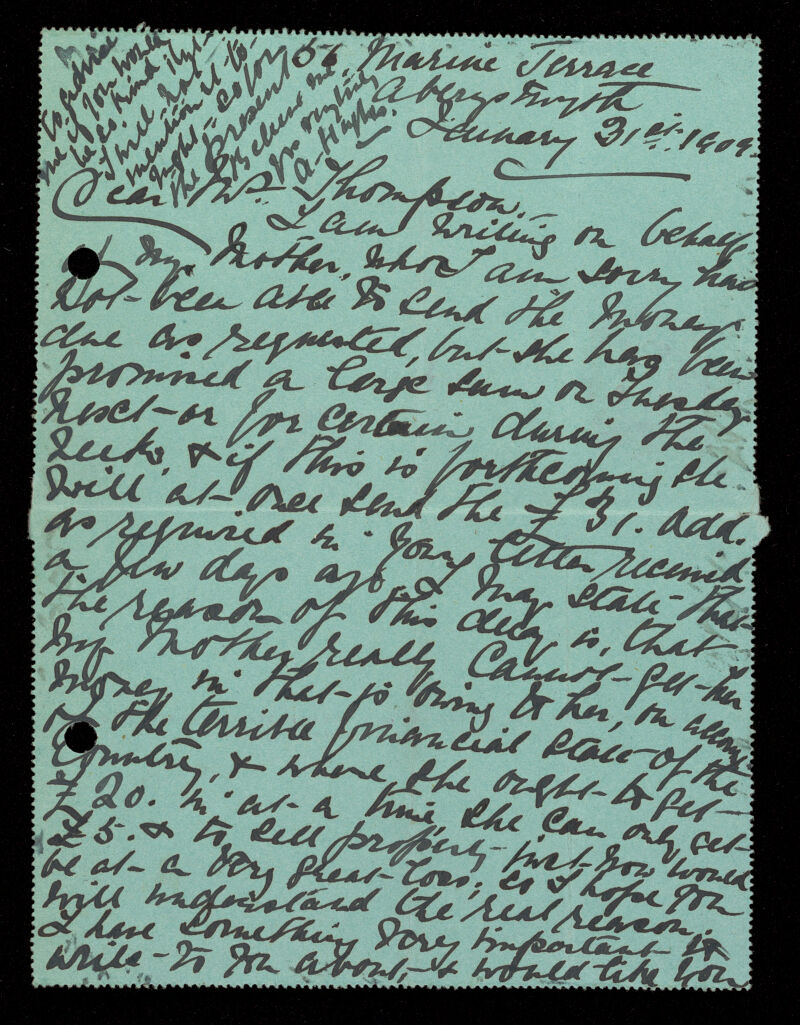 56. Marine Terrace
Aberystwyth
January 31st. 1909.
Dear Mr. Thompson.
I am writing on behalf
of my Mother, who I am sorry has
not been able to send the money
due as requested, but she has been
promised a large sum on Tuesday
next or for certain during the
week, & if this is forthcoming she
will at once send the £31. odd.
as required in your letter received
a few days ago. I may state that
the reason of this delay is, that
my Mother really cannot get her
money in that is owing to her, on account
of the terrible financial state of the
Country, & where she ought to get
£20. in at a time, she can only get
£5. & to sell property just now would
be at a very great loss, so I hope you
will understand the real reason.
I have something very important to
write to you about, & would like you
to advise
me if you would
be so kind, but
I shall not
mention it to
night, so for
the present
Believe me
Yrs
A. Hughes.